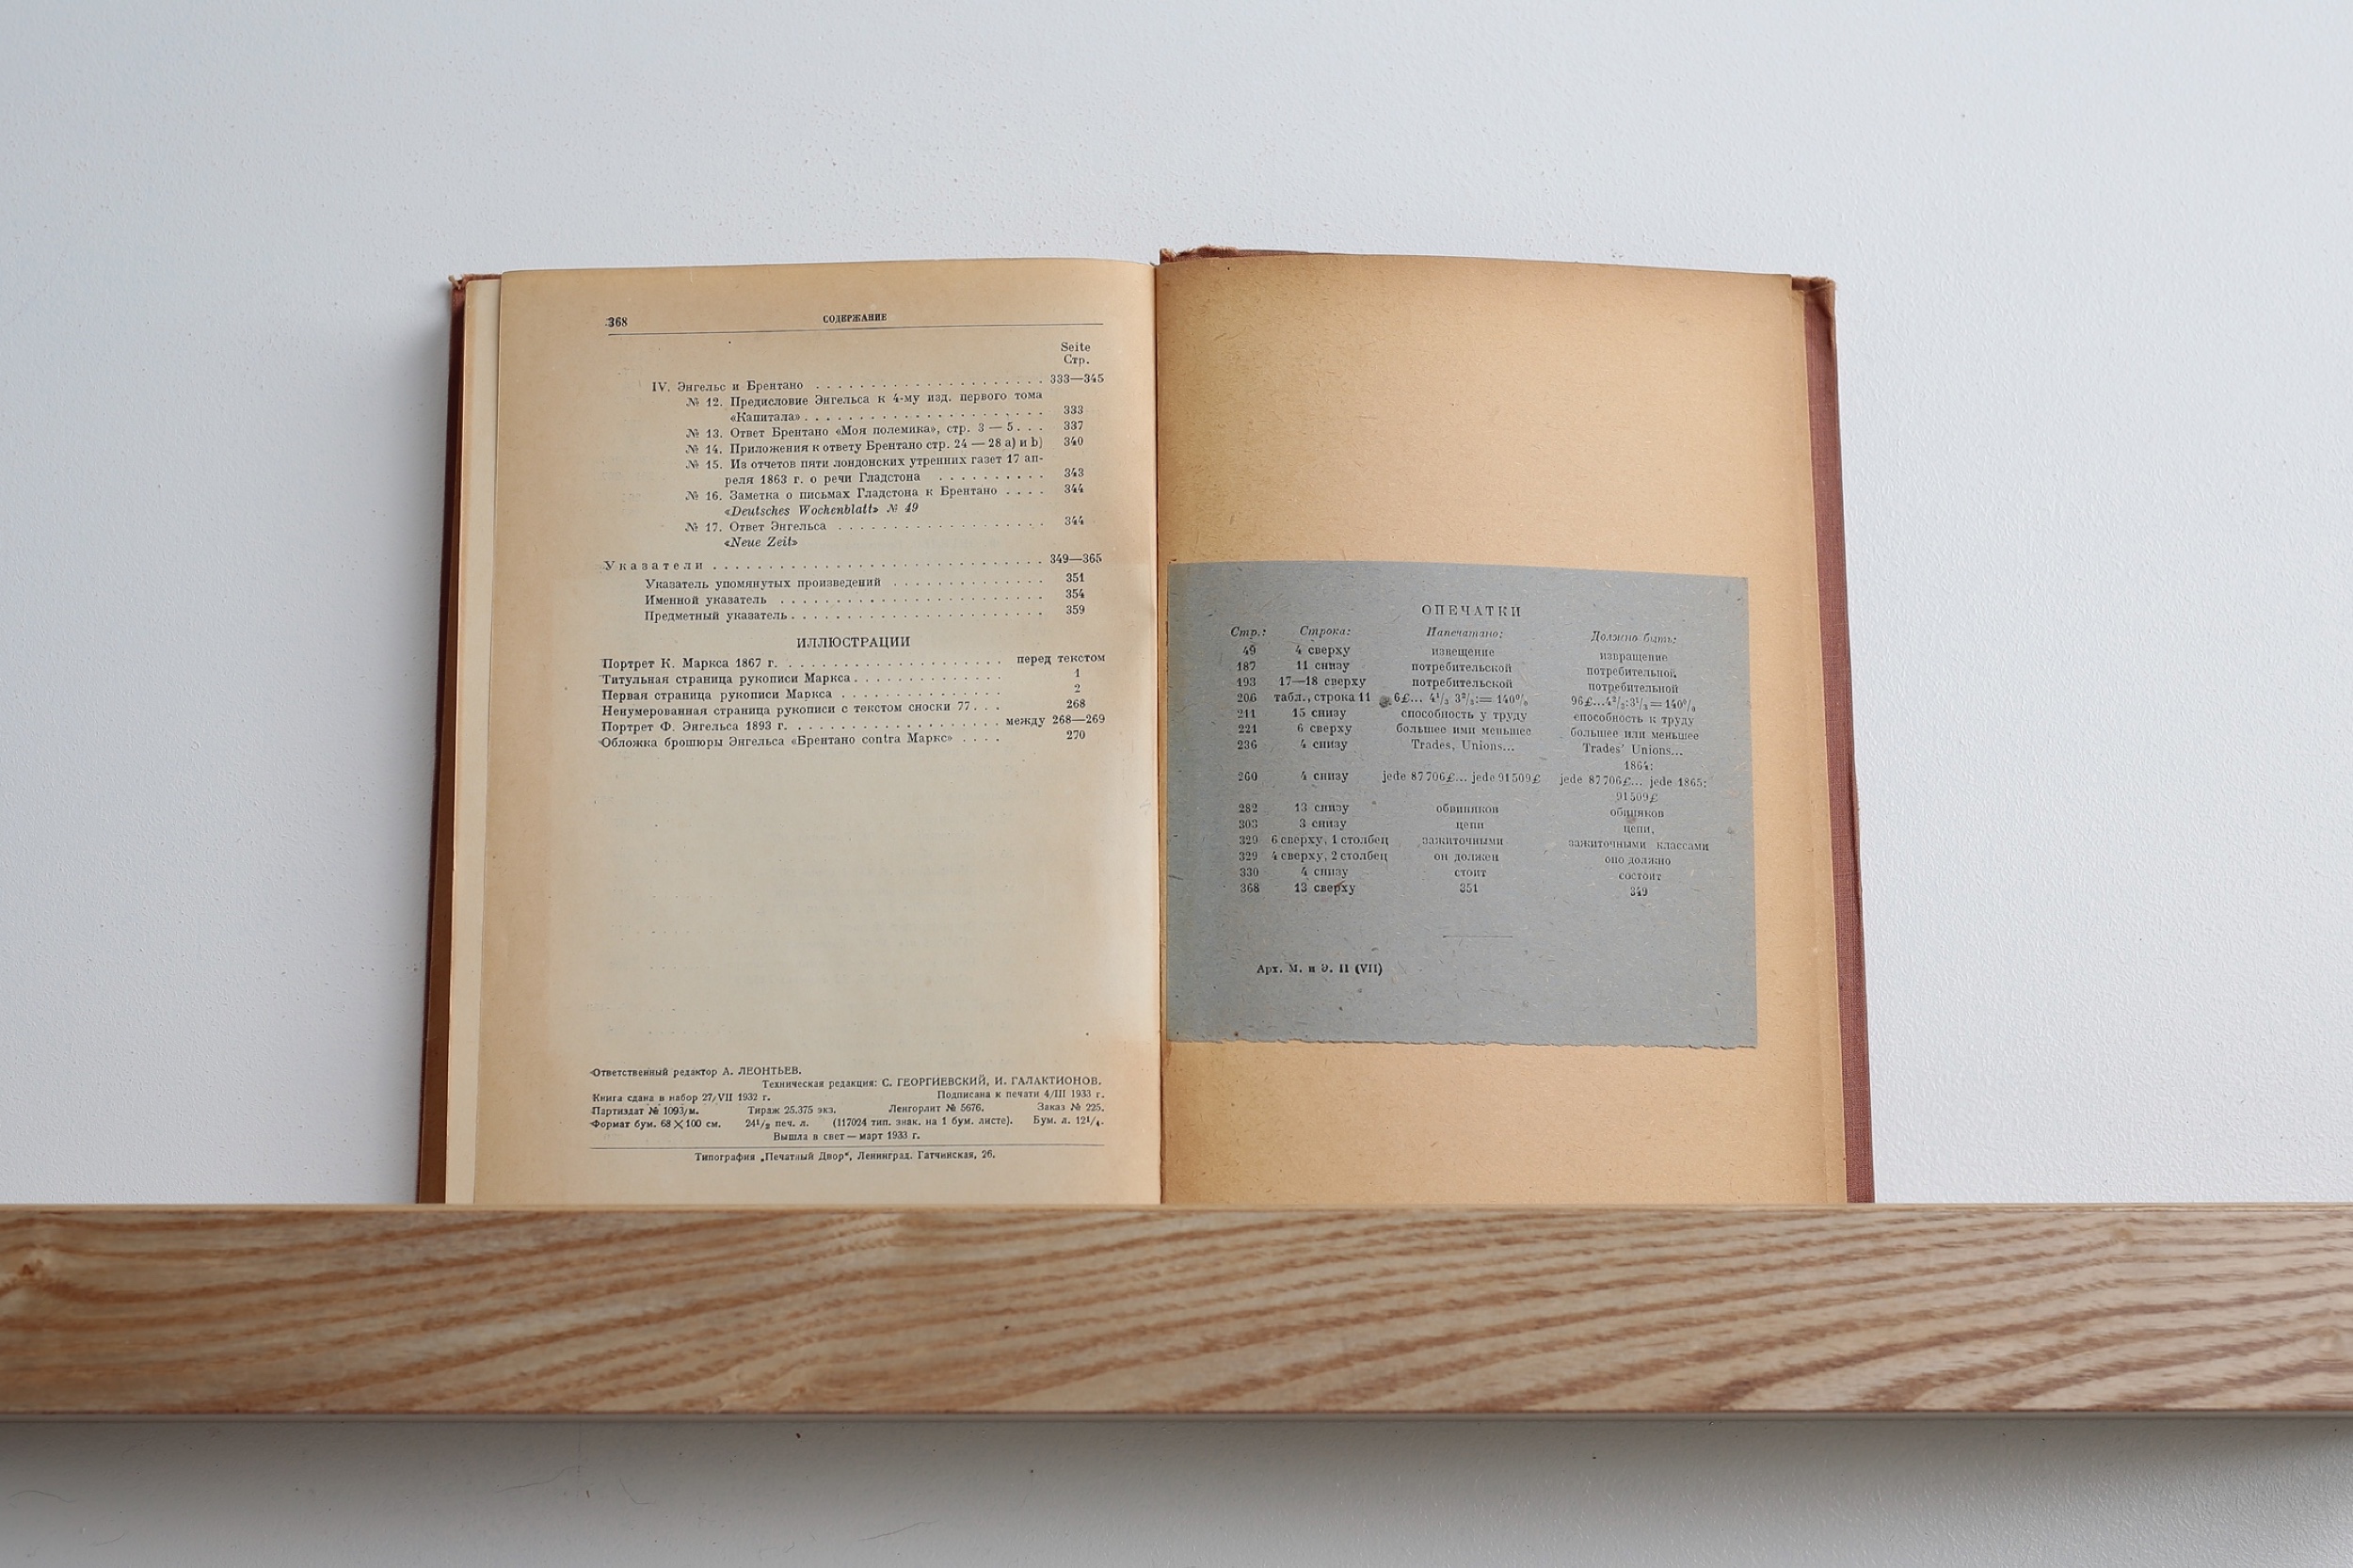 368
СОДЕРЖАНИЕ
Seite
Стр.
IV. Энгельс и Брентано . . . . . . . . . . . . . . . . . . . . . 333—345
№ 12. Предисловие Энгельса к 4-му изд. первого тома
«Капитала» . . . . . . . . . . . . . . . . . . . . . . 333
№ 13. Ответ Брентано «Моя полемика», стр. 3 — 5 . . . 337
№ 14. Приложения к ответу Брентано стр. 24 — 28 a) и b) 340
№ 15. Из отчетов пяти лондонских утренних газет 17 ап-
реля 1863 г. о речи Гладстона . . . . . . . . . . 343
№ 16. Заметка о письмах Гладстона к Брентано . . . . 344
«Deutsches Wochenblatt» № 49
№ 17. Ответ Энгельса . . . . . . . . . . . . . . . . . . . 344
«Neue Zeit»
Указатели . . . . . . . . . . . . . . . . . . . . . . . . . . . . . . 349—365
Указатель упомянутых произведений . . . . . . . . . . . . . . 351
Именной указатель . . . . . . . . . . . . . . . . . . . . . . . . 354
Предметный указатель . . . . . . . . . . . . . . . . . . . . . . . 359
ИЛЛЮСТРАЦИИ
Портрет К. Маркса 1867 г. . . . . . . . . . . . . . . . . . . . . перед текстом
Титульная страница рукописи Маркса . . . . . . . . . . . . . . 1
Первая страница рукописи Маркса . . . . . . . . . . . . . . . 2
Ненумерованная страница рукописи с текстом сноски 77 . . . 268
Портрет Ф. Энгельса 1893 г. . . . . . . . . . . . . . . . . . . . между 268—269
Обложка брошюры Энгельса «Брентано contra Маркс» . . . . 270
Ответственный редактор А. ЛЕОНТЬЕВ.
Техническая редакция: С. ГЕОРГИЕВСКИЙ, И. ГАЛАКТИОНОВ.
Книга сдана в набор 27/VII 1932 г. Подписана к печати 4/III 1933 г.
Партиздат № 1093/м. Тираж 25.375 экз. Ленгорлит № 5676. Заказ № 225.
Формат бум. 68×100 см. 24¹/₂ печ. л. (117024 тип. знак. на 1 бум. листе). Бум. л. 12¹/₄.
Вышла в свет — март 1933 г.
Типография „Печатный Двор", Ленинград. Гатчинская, 26.
ОПЕЧАТКИ
Стр.: Строка: Напечатано: Должно быть:
49 4 сверху извещение извращение
187 11 снизу потребительской потребительной
193 17—18 сверху потребительской потребительной
206 табл., строка 11 6£... 4¹/₃ 3²/₃:= 140⁰/₀ 96£...4²/₃:3¹/₃ = 140⁰/₀
211 15 снизу способность у труду способность к труду
221 6 сверху большее ими меньшее большее или меньшее
236 4 снизу Trades, Unions... Trades' Unions...
1864:
260 4 снизу jede 87706£... jede 91509£ jede 87706£... jede 1865:
91509£
282 13 снизу обвиняков обиняков
303 3 снизу цепи цепи,
329 6 сверху, 1 столбец зажиточными зажиточными классами
329 4 сверху, 2 столбец он должен оно должно
330 4 снизу стоит состоит
368 13 сверху 351 349
Арх. М. и Э. II (VII)